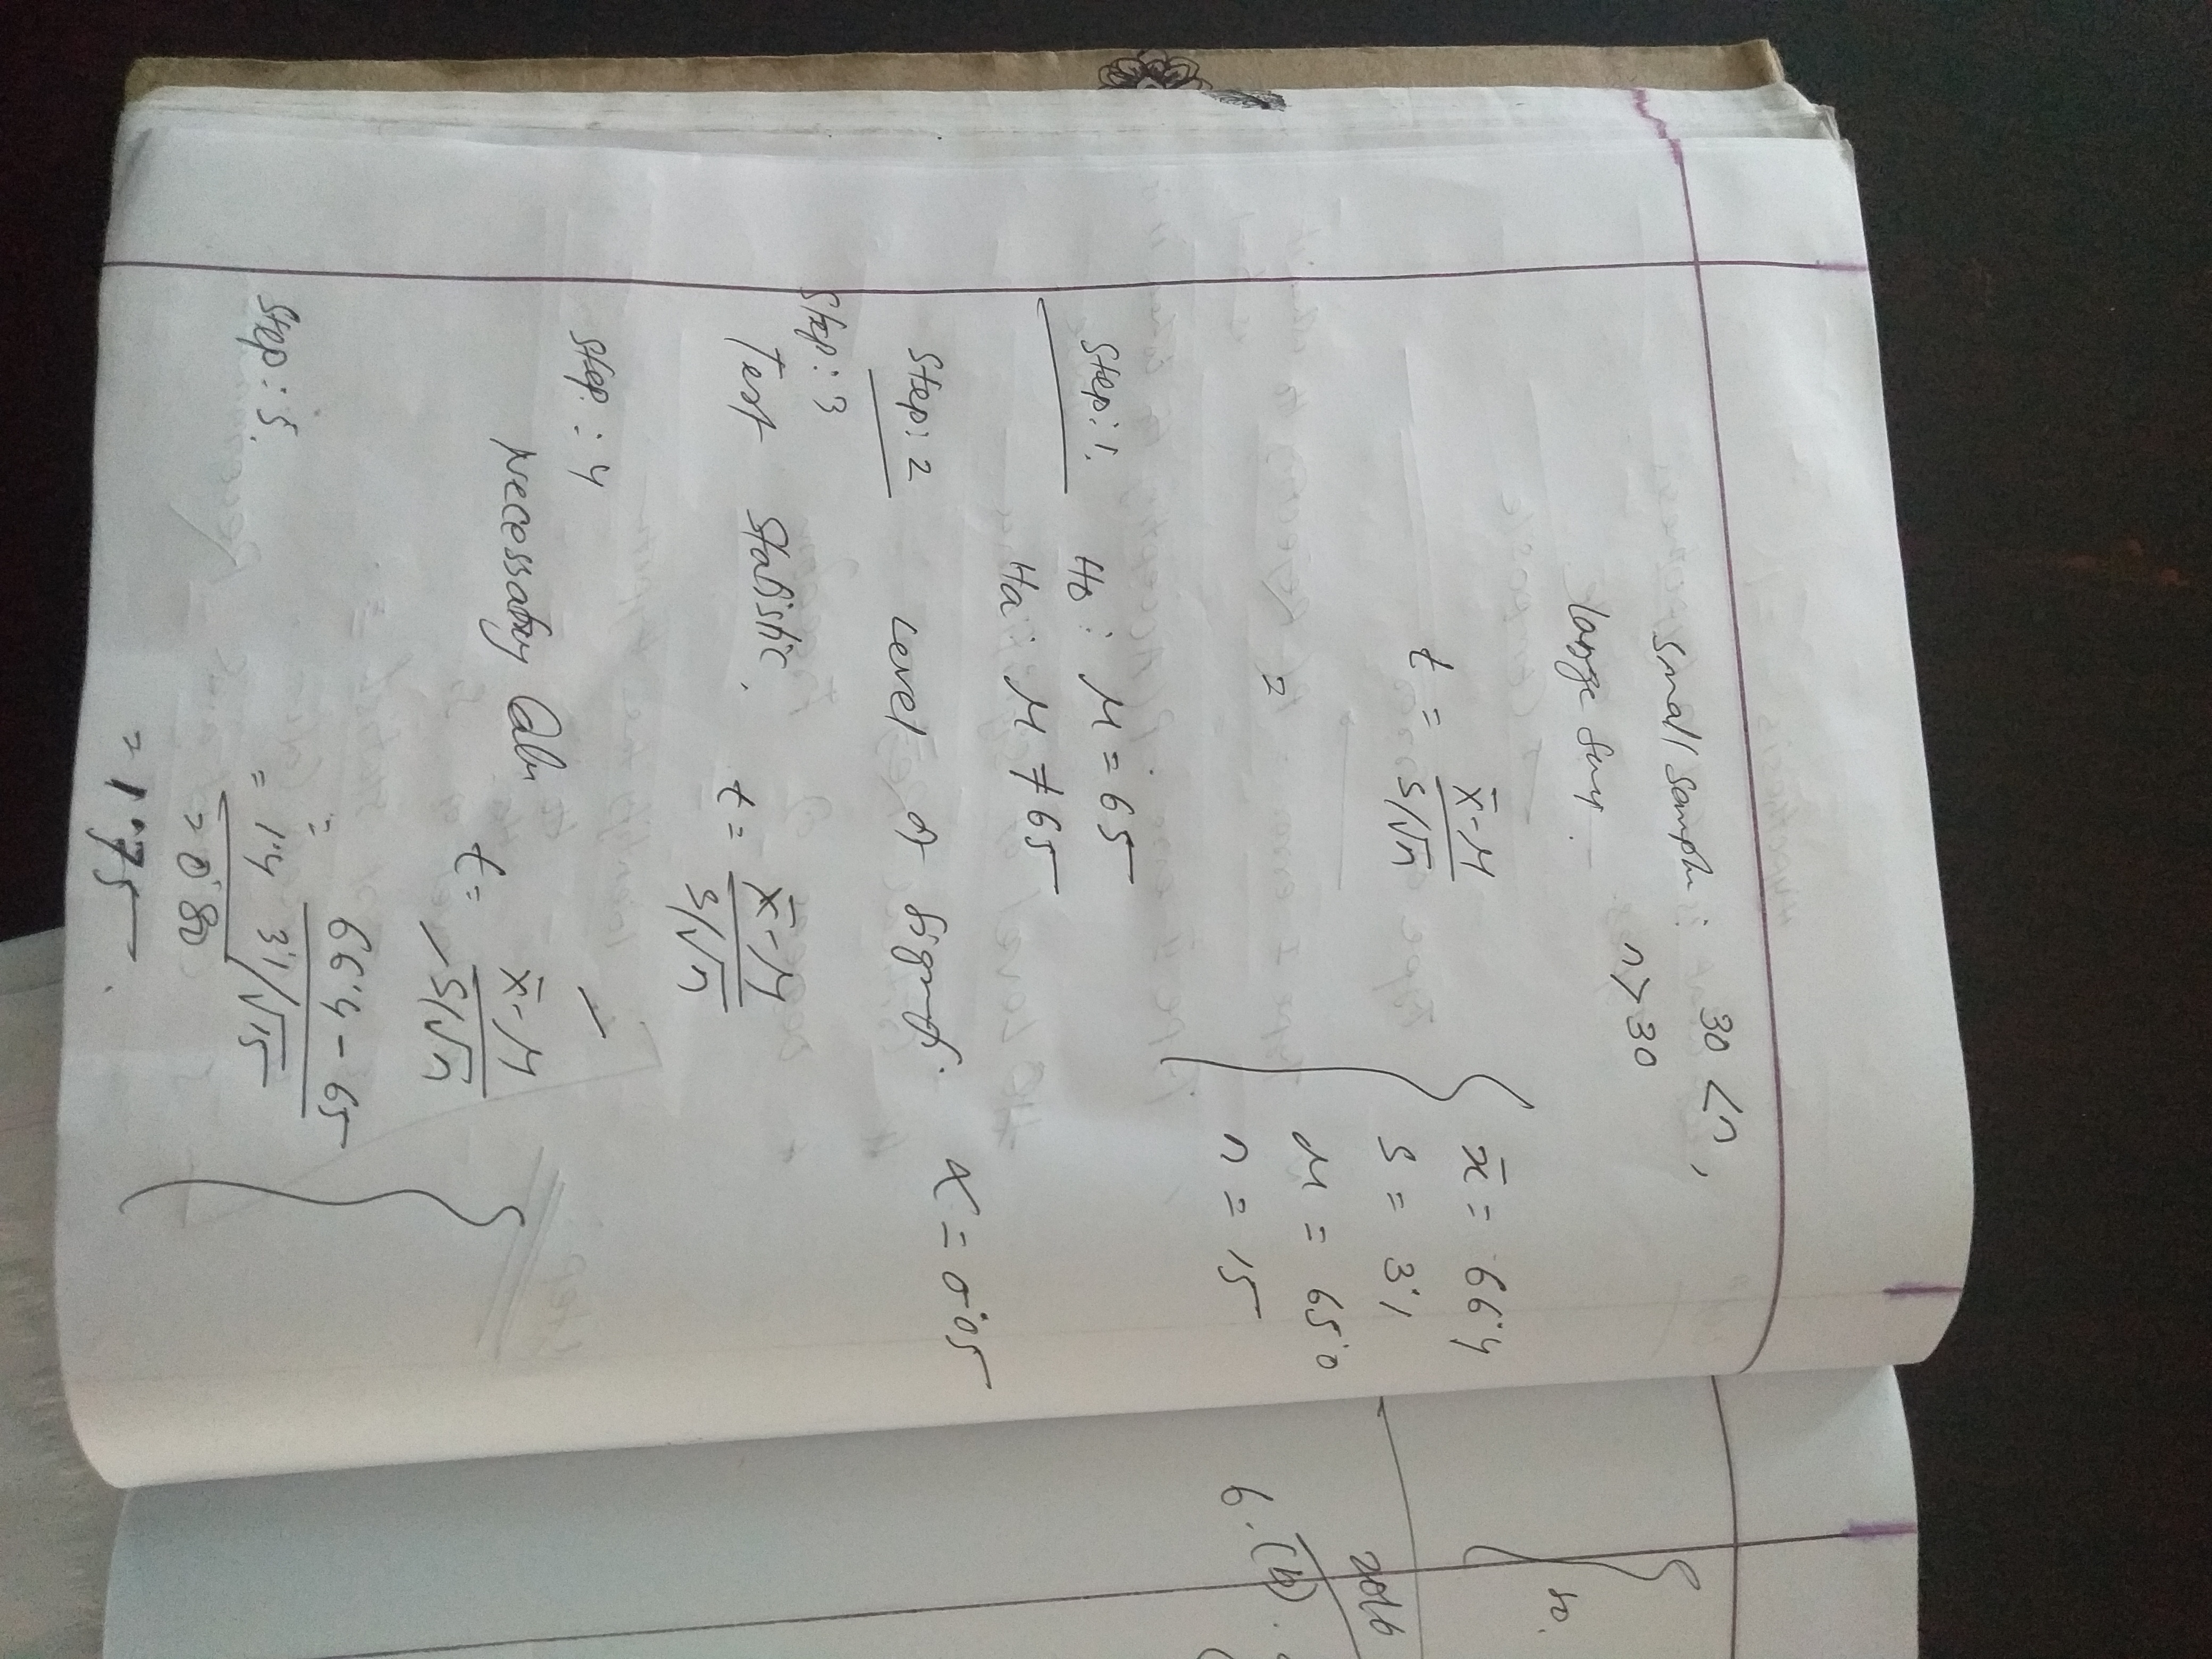 small sample: 30 < n,
large sam. n > 30
t = x̄ - μ / s/√n
x̄ = 66.4
s = 3.1
μ = 65.0
n = 15
=
Step: 1. H₀ : μ = 65
Ha : μ ≠ 65
Step: 2 Level of Signf. α = 0.05
Step: 3
Test Statistic. t = x̄ - μ / s/√n
Step: 4
Necessary Calu
t = x̄ - μ / s/√n
= 66.4 - 65 / 3.1/√15
Step: 5.
= 1.4
= 0.80
= 1.75
so.
6. (b).